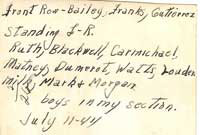 Front Row-Bailey, Franks, Gutierrez
Standing L-R.
Ruth, Blackwell, Carmichael,
Matney, Dumerot, Watts, Louden
Mark & Morgan
boys in my section.
July 11-44